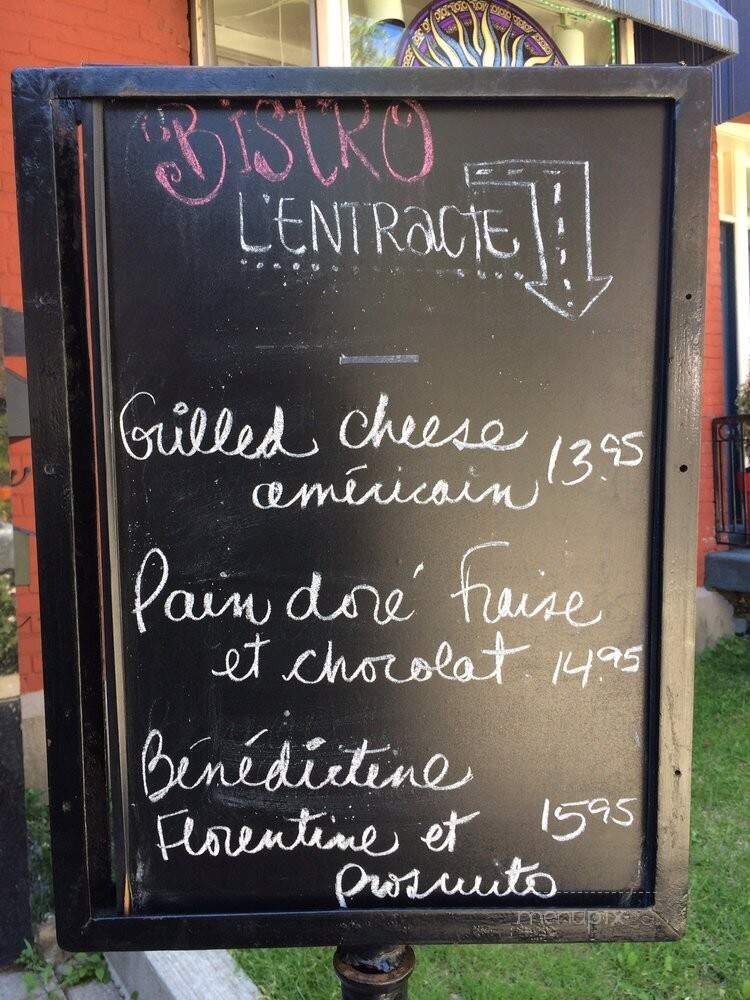 BISTRO
L'ENTRACTE
Grilled cheese
américain 13.95
Pain doré fraise
et chocolat 14.95
Bénédictine
Florentine et 15.95
proscuito
menupix